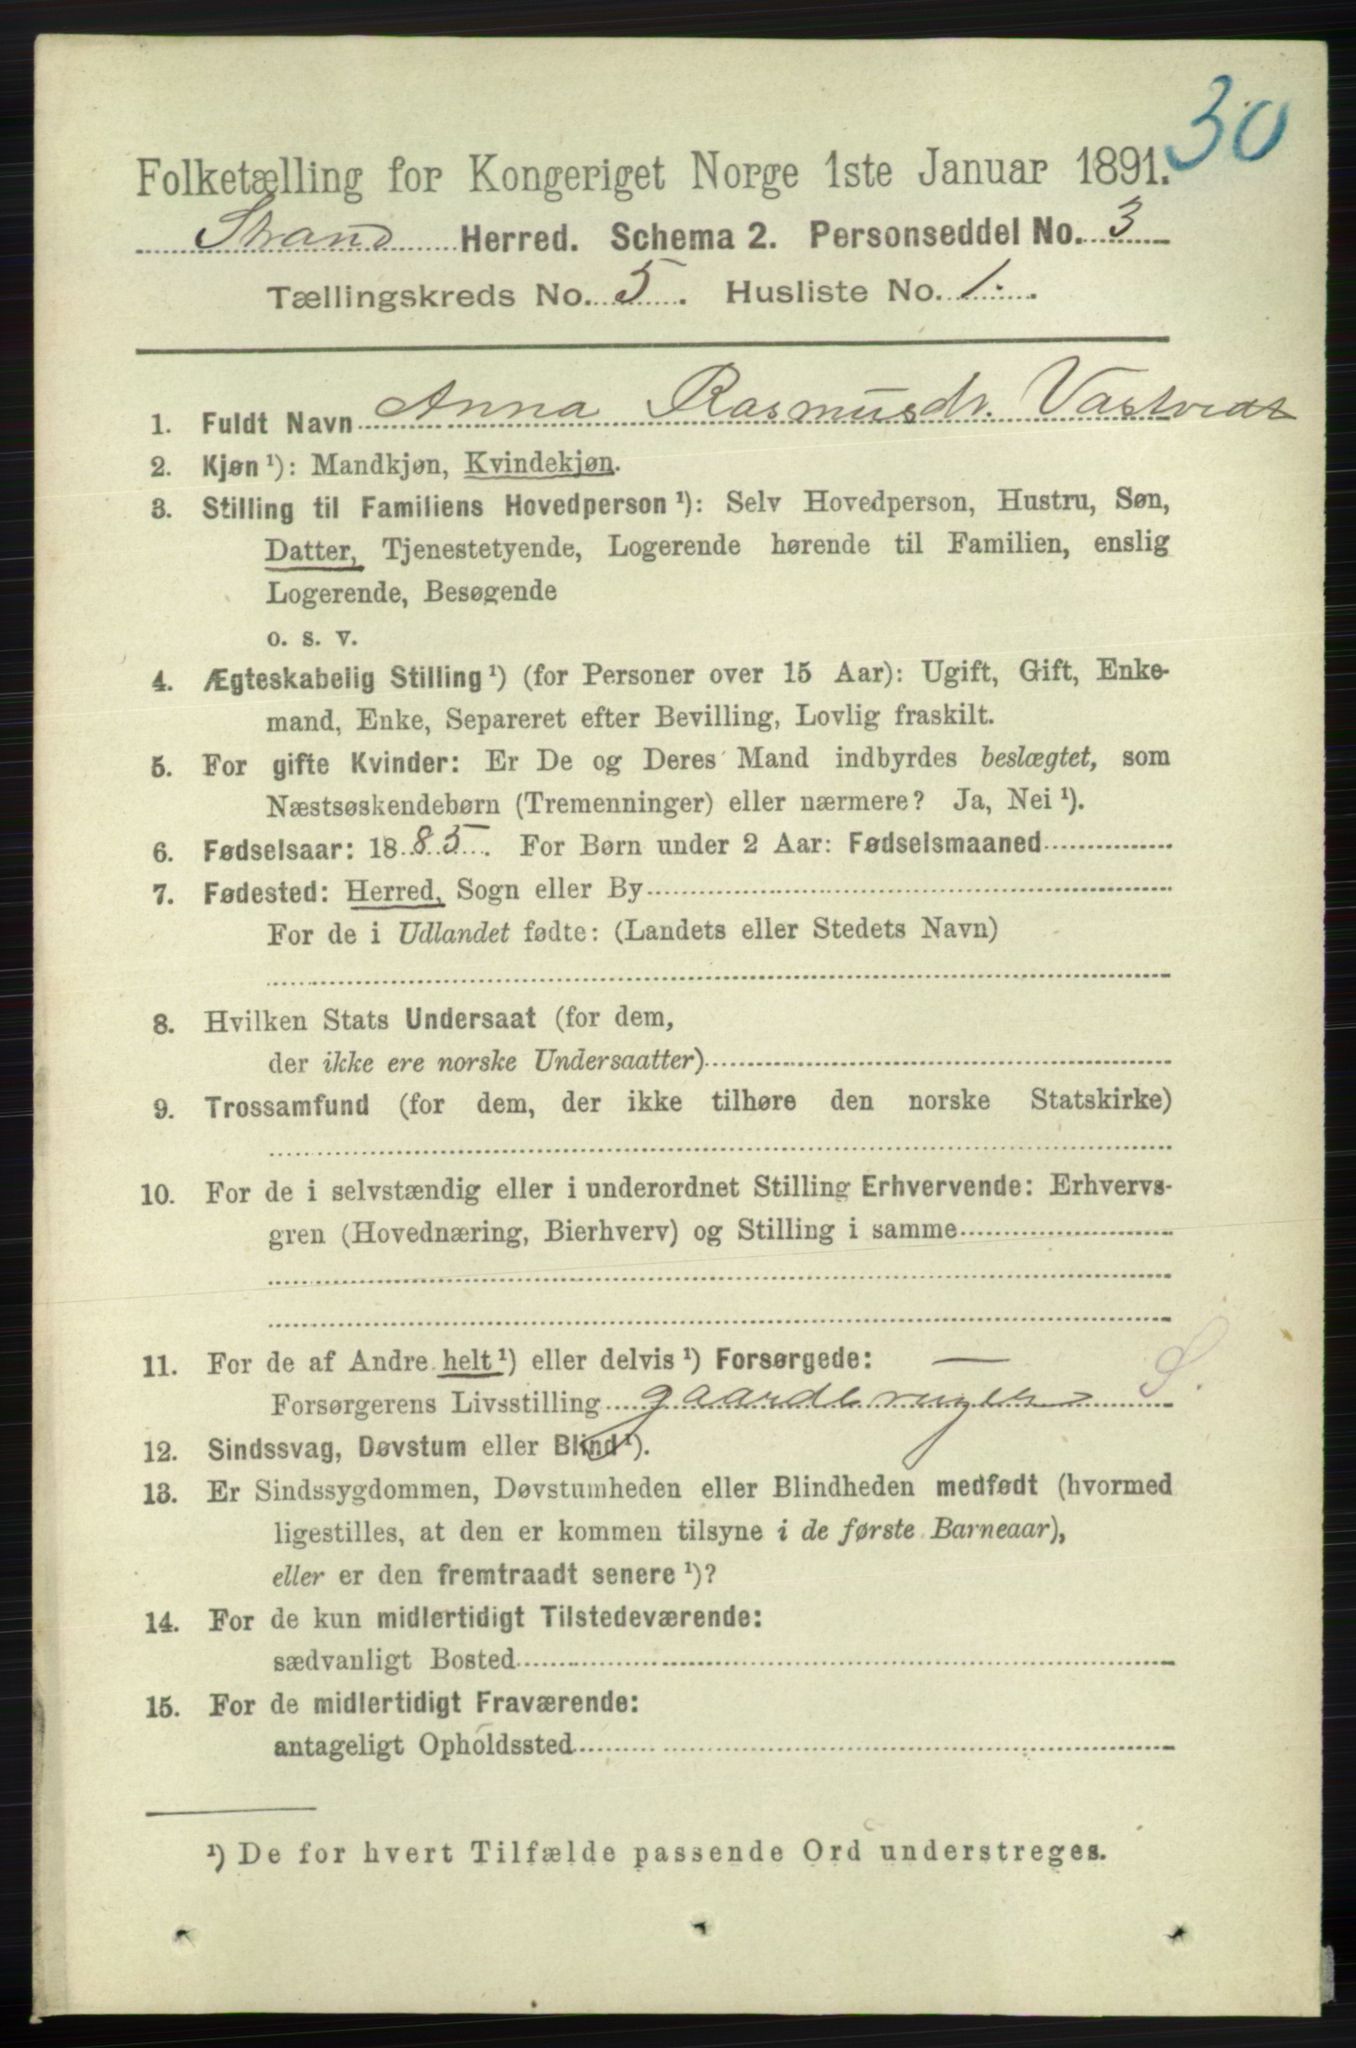 30
Folketælling for Kongeriget Norge 1ste Januar 1891.
Strand Herred. Schema 2. Personseddel No. 3
Tællingskreds No. 5. Husliste No. 1.
1. Fuldt Navn Anna Rasmusdr. Vastvedt
2. Kjøn ¹): Mandkjøn, Kvindekjøn.
3. Stilling til Familiens Hovedperson ¹): Selv Hovedperson, Hustru, Søn,
Datter, Tjenestetyende, Logerende hørende til Familien, enslig
Logerende, Besøgende
o. s. v.
4. Ægteskabelig Stilling ¹) (for Personer over 15 Aar): Ugift, Gift, Enke-
mand, Enke, Separeret efter Bevilling, Lovlig fraskilt.
5. For gifte Kvinder: Er De og Deres Mand indbyrdes beslægtet, som
Næstsøskendebørn (Tremenninger) eller nærmere? Ja, Nei ¹).
6. Fødselsaar: 1885. For Børn under 2 Aar: Fødselsmaaned
7. Fødested: Herred, Sogn eller By
For de i Udlandet fødte: (Landets eller Stedets Navn)
8. Hvilken Stats Undersaat (for dem,
der ikke ere norske Undersaatter)
9. Trossamfund (for dem, der ikke tilhøre den norske Statskirke)
10. For de i selvstændig eller i underordnet Stilling Erhvervende: Erhvervs-
gren (Hovednæring, Bierhverv) og Stilling i samme
11. For de af Andre helt ¹) eller delvis ¹) Forsørgede: —
Forsørgerens Livsstilling gaardbruger S.
12. Sindssvag, Døvstum eller Blind ¹).
13. Er Sindssygdommen, Døvstumheden eller Blindheden medfødt (hvormed
ligestilles, at den er kommen tilsyne i de første Barneaar),
eller er den fremtraadt senere ¹)?
14. For de kun midlertidigt Tilstedeværende:
sædvanligt Bosted
15. For de midlertidigt Fraværende:
antageligt Opholdssted
¹) De for hvert Tilfælde passende Ord understreges.